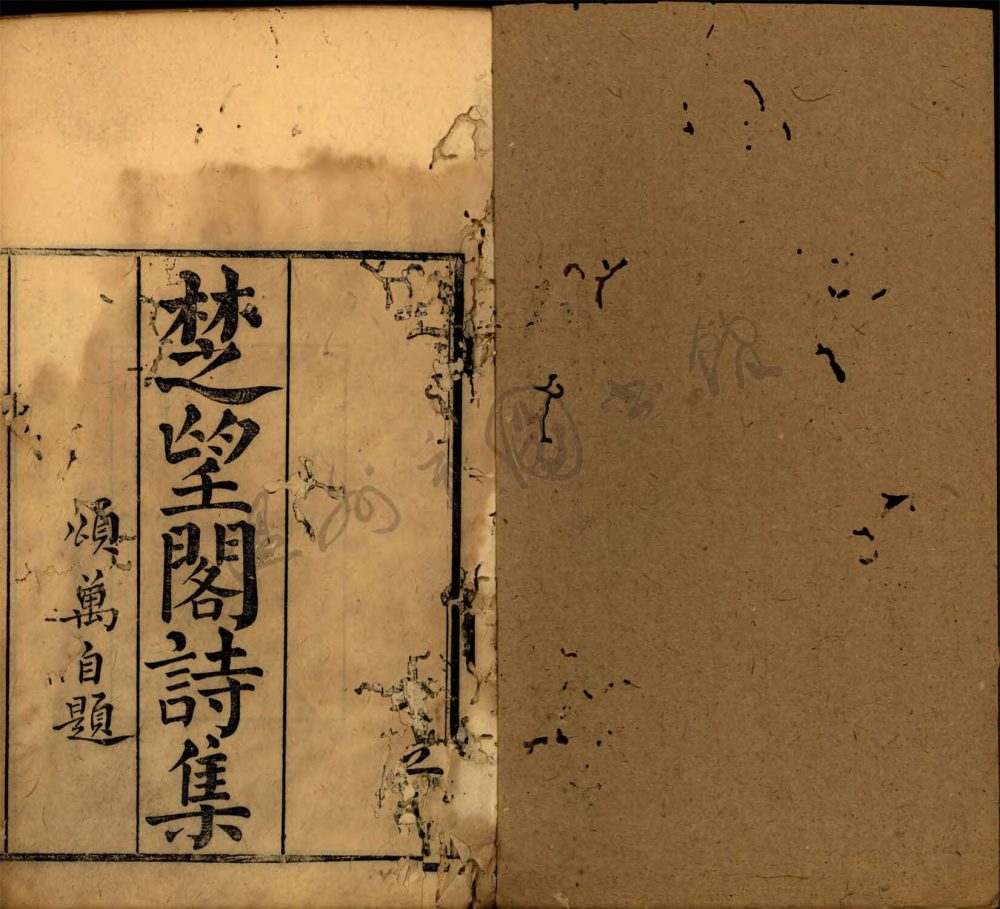 楚望閣詩集
頌萬自題